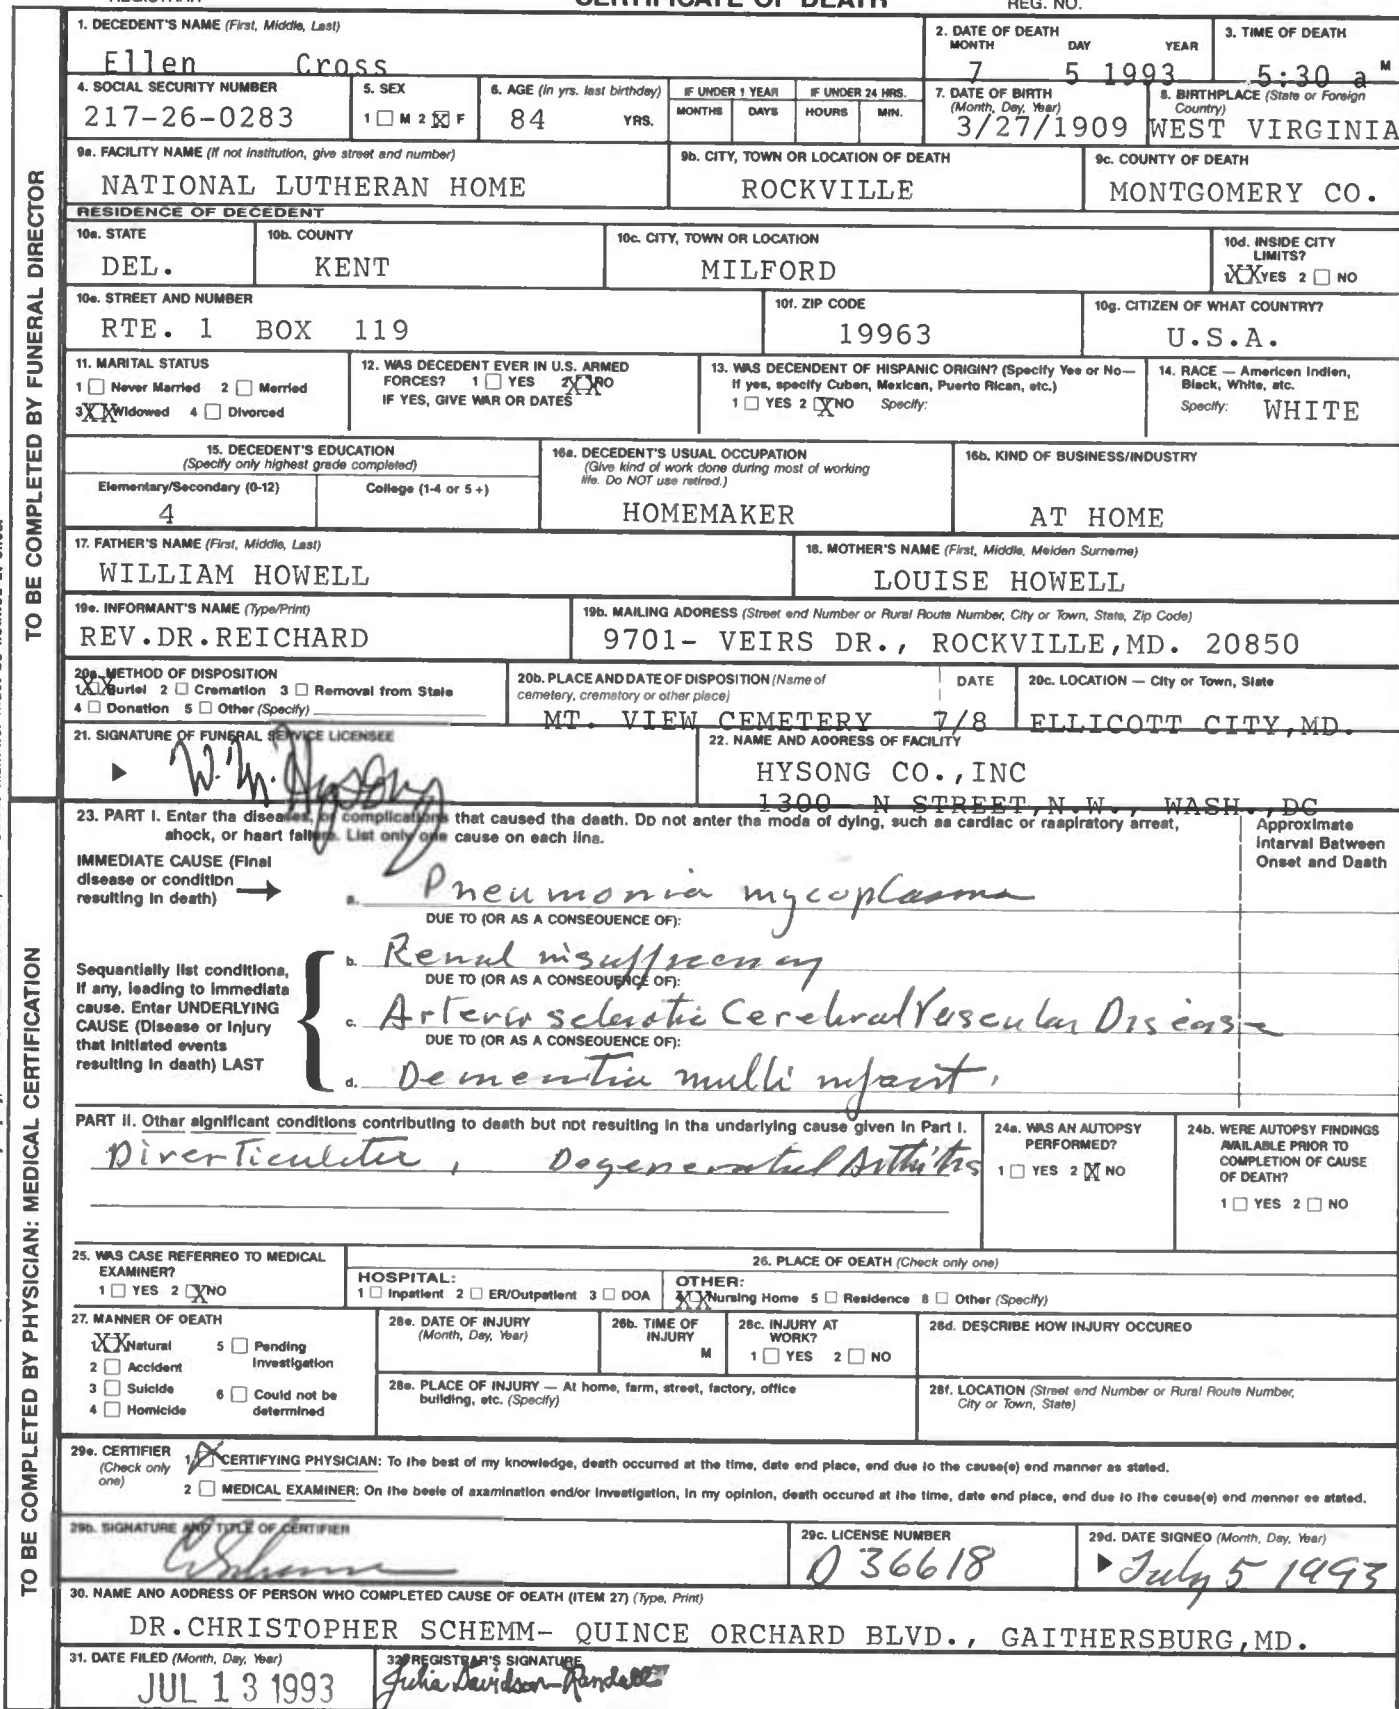 CERTIFICATE OF DEATH
REG. NO.
1. DECEDENT'S NAME (First, Middle, Last)
Ellen Cross
2. DATE OF DEATH
MONTH DAY YEAR
7 5 1993
3. TIME OF DEATH
5:30 a M
4. SOCIAL SECURITY NUMBER
217-26-0283
5. SEX
1 ☐ M 2 ☒ F
6. AGE (In yrs. last birthday)
84 YRS.
IF UNDER 1 YEAR
MONTHS DAYS
IF UNDER 24 HRS.
HOURS MIN.
7. DATE OF BIRTH
(Month, Day, Year)
3/27/1909
8. BIRTHPLACE (State or Foreign
Country)
WEST VIRGINIA
9a. FACILITY NAME (If not institution, give street and number)
NATIONAL LUTHERAN HOME
9b. CITY, TOWN OR LOCATION OF DEATH
ROCKVILLE
9c. COUNTY OF DEATH
MONTGOMERY CO.
RESIDENCE OF DECEDENT
10a. STATE
DEL.
10b. COUNTY
KENT
10c. CITY, TOWN OR LOCATION
MILFORD
10d. INSIDE CITY
LIMITS?
1 XX YES 2 ☐ NO
10e. STREET AND NUMBER
RTE. 1 BOX 119
10f. ZIP CODE
19963
10g. CITIZEN OF WHAT COUNTRY?
U.S.A.
11. MARITAL STATUS
1 ☐ Never Married 2 ☐ Married
3 XX Widowed 4 ☐ Divorced
12. WAS DECEDENT EVER IN U.S. ARMED
FORCES? 1 ☐ YES 2 XX NO
IF YES, GIVE WAR OR DATES
13. WAS DECENDENT OF HISPANIC ORIGIN? (Specify Yes or No—
If yes, specify Cuban, Mexican, Puerto Rican, etc.)
1 ☐ YES 2 ☒ NO Specify:
14. RACE — American Indian,
Black, White, etc.
Specify: WHITE
15. DECEDENT'S EDUCATION
(Specify only highest grade completed)
Elementary/Secondary (0-12) College (1-4 or 5+)
4
16a. DECEDENT'S USUAL OCCUPATION
(Give kind of work done during most of working
life. Do NOT use retired.)
HOMEMAKER
16b. KIND OF BUSINESS/INDUSTRY
AT HOME
17. FATHER'S NAME (First, Middle, Last)
WILLIAM HOWELL
18. MOTHER'S NAME (First, Middle, Maiden Surname)
LOUISE HOWELL
19a. INFORMANT'S NAME (Type/Print)
REV.DR.REICHARD
19b. MAILING ADDRESS (Street and Number or Rural Route Number, City or Town, State, Zip Code)
9701- VEIRS DR., ROCKVILLE,MD. 20850
20a. METHOD OF DISPOSITION
1 XX Burial 2 ☐ Cremation 3 ☐ Removal from State
4 ☐ Donation 5 ☐ Other (Specify)
20b. PLACE AND DATE OF DISPOSITION (Name of
cemetery, crematory or other place)
MT. VIEW CEMETERY
DATE
7/8
20c. LOCATION — City or Town, State
ELLICOTT CITY,MD.
21. SIGNATURE OF FUNERAL SERVICE LICENSEE
W. M. Hysong
22. NAME AND ADDRESS OF FACILITY
HYSONG CO.,INC
1300- N STREET,N.W., WASH.,DC
23. PART I. Enter the diseases, or complications that caused the death. Do not enter the mode of dying, such as cardiac or respiratory arrest,
shock, or heart failure. List only one cause on each line.
Approximate
Interval Between
Onset and Death
IMMEDIATE CAUSE (Final
disease or condition
resulting in death)
a. Pneumonia mycoplasma
DUE TO (OR AS A CONSEQUENCE OF):
Sequentially list conditions,
if any, leading to immediate
cause. Enter UNDERLYING
CAUSE (Disease or Injury
that initiated events
resulting in death) LAST
b. Renal insufficiency
DUE TO (OR AS A CONSEQUENCE OF):
c. Arterio sclerotic Cerebral Vascular Disease
DUE TO (OR AS A CONSEQUENCE OF):
d. Dementia multi infarct.
PART II. Other significant conditions contributing to death but not resulting in the underlying cause given in Part I.
Diverticulitis, Degenerative Arthritis
24a. WAS AN AUTOPSY
PERFORMED?
1 ☐ YES 2 ☒ NO
24b. WERE AUTOPSY FINDINGS
AVAILABLE PRIOR TO
COMPLETION OF CAUSE
OF DEATH?
1 ☐ YES 2 ☐ NO
25. WAS CASE REFERRED TO MEDICAL
EXAMINER?
1 ☐ YES 2 ☒ NO
26. PLACE OF DEATH (Check only one)
HOSPITAL:
1 ☐ Inpatient 2 ☐ ER/Outpatient 3 ☐ DOA
OTHER:
4 XX Nursing Home 5 ☐ Residence 6 ☐ Other (Specify)
27. MANNER OF DEATH
1 XX Natural 5 ☐ Pending
Investigation
2 ☐ Accident
3 ☐ Suicide 6 ☐ Could not be
determined
4 ☐ Homicide
28a. DATE OF INJURY
(Month, Day, Year)
28b. TIME OF
INJURY
M
28c. INJURY AT
WORK?
1 ☐ YES 2 ☐ NO
28d. DESCRIBE HOW INJURY OCCURED
28e. PLACE OF INJURY — At home, farm, street, factory, office
building, etc. (Specify)
28f. LOCATION (Street and Number or Rural Route Number,
City or Town, State)
29a. CERTIFIER
(Check only
one)
1 ☒ CERTIFYING PHYSICIAN: To the best of my knowledge, death occurred at the time, date and place, and due to the cause(s) and manner as stated.
2 ☐ MEDICAL EXAMINER: On the basis of examination and/or investigation, in my opinion, death occured at the time, date and place, and due to the cause(s) and manner as stated.
29b. SIGNATURE AND TITLE OF CERTIFIER
C Schemm
29c. LICENSE NUMBER
D 36618
29d. DATE SIGNED (Month, Day, Year)
July 5 1993
30. NAME AND ADDRESS OF PERSON WHO COMPLETED CAUSE OF DEATH (ITEM 27) (Type, Print)
DR.CHRISTOPHER SCHEMM- QUINCE ORCHARD BLVD., GAITHERSBURG,MD.
31. DATE FILED (Month, Day, Year)
JUL 13 1993
32. REGISTRAR'S SIGNATURE
Julia Davidson-Randall
TO BE COMPLETED BY FUNERAL DIRECTOR
TO BE COMPLETED BY PHYSICIAN: MEDICAL CERTIFICATION